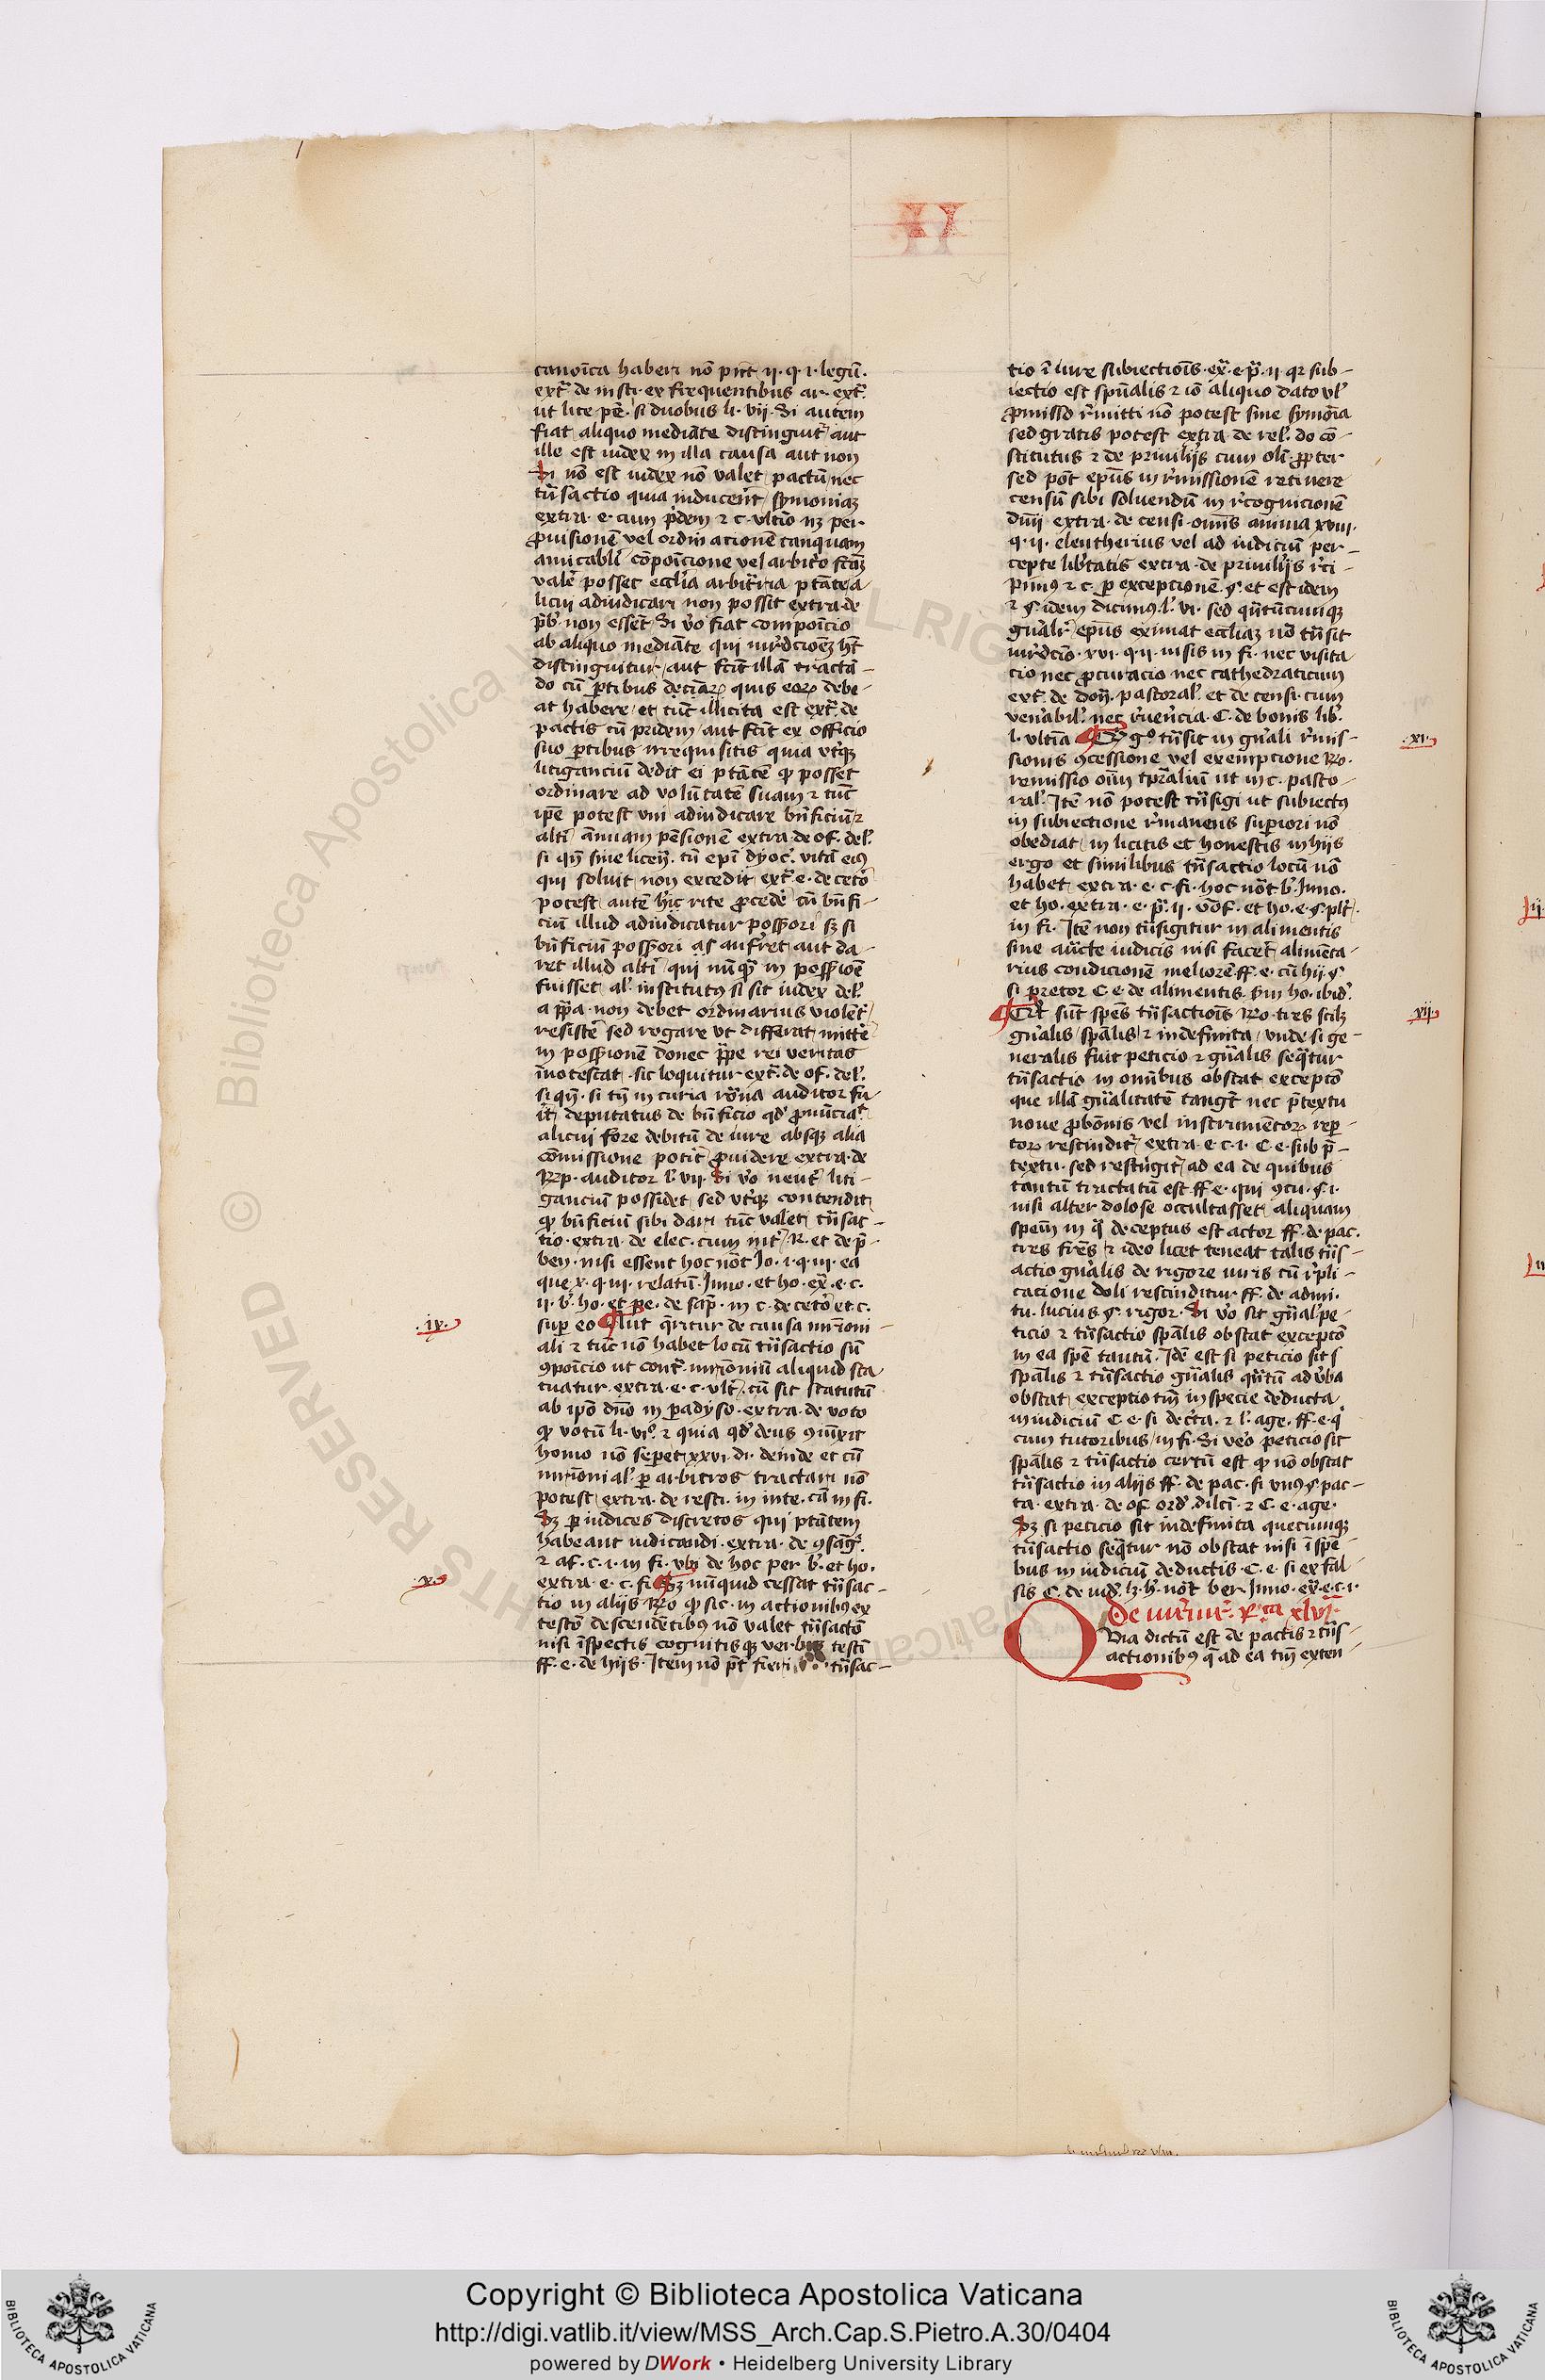 II
canoīca haberi nō pn̄t ii. q. i. legū.
ext̄ de insti. ex frequentibus ar. ext̄
ut lite pē. si duobus li. vij. Si autem
fiat aliquo mediāte distinguit̄ aut
ille est iudex in illa causa aut non
Si nō est iudex nō valet pactū nec
tn̄sactio quia inducerēt symoniaȝ
extra. e. cum p̄dem ⁊ c. vltīo nȝ per
ꝓuisionē vel ordinacionē tanquam
amicabli cōpoīcione vel arbitͦ fcāȝ
valē posset eccl̄ia arbitria ptāte a
licui adiudicari non possit extra. de
p̄b. non essēt. Si v̄o fiat compoīcio
ab aliquo mediāte qui iur̄dcioēȝ hēt
distinguitur aut fcīt illā tractā-
do cū ꝑtibus quis eoꝝ debe-
at habere et tūc illicita est ext̄. de
pactis cū pridem aut fcīt ex officio
suo ꝑtibus irrequisitis quia vtq̄ȝ
litiganciū dedit ei ptātē ꝙ posset
ordinare ad volūtatē suam ⁊ tūc
ip̄e potest vni adiudicare bn̄ficiū ⁊
altī annuam pēsionē extra. de of. del̄.
si qn̄ sine licen̄. tn̄ epī dyoc̄. vitā eiꝰ
qui soluit non excedit ext̄. e. de cetō
potest autē hic rite ꝓcedē cū bn̄fi-
ciū illud adiudicatur poss̄ori sȝ si
bn̄ficiū poss̄ori auferet aut da-
ret illud altī qui nūq̄ in poss̄ioē
fuisset al̄ institutꝰ si sit iudex del̄.
a p̄pa. non debet ordinarius violēt̄
resistē sed rogare vt differat mittē
in poss̄ionē donec p̄pe rei veritas
īnotescat. sic loquitur ext̄. de of. del̄.
si qn̄. si tn̄ in curia rōna auditor fu-
it̄ deputatus de bn̄ficio qd̄ ꝓnūciat̄
alicui fore debitū de iure absqȝ alia
cōmissione potīt ꝓuidere extra. de
Rēp. auditor l. vij. Si v̄o neut̄ liti-
ganciū possidet sed vtq̄ȝ contendit
ꝙ bn̄ficiū sibi dari tūc valet tn̄sac-
tio. extra. de elec. cum int̄ R. et de p̄-
ben. nisi essent hoc nōt Io. i. q. iii. ea
que x. q. iii. relatū. Inno. et ho. ex̄. e. c.
ii. b̄. ho. et pe. de sap̄. in c. de cetō et c.
suꝑ eo ¶ Aut q̄ritur de causa mr̄ioni-
ali ⁊ tūc nō habet locū tn̄sactio siu
ꝯpoīcio ut contͣ mr̄ioniū aliquid sta
tuatur. extra. e. c. vlt̄. cū sit statutū
ab ipō dn̄o in ꝑadyso. extra. de voto
ꝙ votū li. viͦ. ⁊ quia qd̄ deus ꝯiūxit
homo nō seꝑet xxvi. di. deinde et cū
mr̄ioni al̄ ꝑ arbitros tractari nō
potest extra. de resti. in inte. cā in fi.
Sȝ ꝑ iudices discretos qui ptātem
habeant iudicandi. extra. de ꝯsāḡ.
⁊ af. c. i. in fi. vbi de hoc per b̄. et ho.
extra. e. c. fi. ¶ Sȝ nūquid cessat tn̄sac-
tio in aliis Rͦo ꝙ sic. in actionibꝰ ex
testō descendētibꝰ nō valet tn̄sactō
nisi īspectis cognitisqȝ verbis testī
ff. e. de hijs. Item nō pt̄ fieri tn̄sac-
.ix.
.x.
tio ī iure subiectiōis. ex̄. e. p̄. ii. qꝛ sub-
iectio est spūalis ⁊ iō aliquo dato vl̄
ꝓmisso r̄mitti nō potest sine symōia
sed gratis potest extra. de rel̄. do cō-
stitutus ⁊ de priuilijs cum olī ꝓpter
sed pōt epūs in r̄missionē retinere
censū sibi soluendū in r̄cognicionē
dn̄ij extra. de censi. omīs anima xviii.
q. ii. eleutherius vel ad iudiciū per-
cepte lib̄tatis extra. de priuilijs r̄ci-
pimꝰ ⁊ c. ꝑ excepcionē. §. et est idem
⁊ §. idem dicimꝰ. l̄. vi. sed qn̄tūcumqȝ
gn̄alr̄ epūs eximat eccl̄iaȝ nō tn̄sit
iur̄dciō. xvi. q. ii. visis in fi. nec visita
cio nec ꝓcuracio nec cathedraticum
ext̄. de dōn. pastoral̄. et de censi. cum
ven̄abil̄. nec r̄uerēcia. C. de bonis lib̄.
l. vltīa ¶ Sȝ gͦ tn̄sit in gn̄ali r̄mis-
sionis ꝯcessione vel exempcione Rͦo.
remissio oīm tp̄raliū ut in c. pasto-
ral̄. Itē nō potest tn̄sigi ut subiectꝰ
in subiectione r̄manens suꝑiori nō
obediat in licitis et honestis in hijs
ergo et similibus tn̄sactio locū nō
habet extra. e. c. fi. hoc nōt b̄. Inno.
et ho. extra. e. p̄. ii. et ho. e. §. plr̄.
in fi. Itē non tn̄sigitur in alimentis
sine aucte iudicis nisi facēt alimēta-
rius condicionē meliorē ff. e. cū hij. §.
si pretor C. e. de alimentis. scdm ho. ibid̄.
¶ Qt̄ sūt spēs tn̄sactiōis Rͦo. tres sciłȝ
gn̄alis spālis ⁊ indefinita vnde si ge-
neralis fuit peticio ⁊ gn̄alis seq̄tur
tn̄sactio in omībus obstat exceptō
que illā gn̄alitatē tangt̄ nec p̄textu
noue ꝓbōnis vel instrumētoꝝ reꝑ-
toꝝ rescindit̄ extra. e. c. i. C. e. sub p̄-
textu. sed restrigit̄ ad ea de quibus
tantū tractatū est ff. e. qui ꝯcu. §. i.
nisi alter dolose occultasset aliquam
spem̄ in q̄ deceptus est actor ff. de pac.
tres fr̄es ⁊ ideo licet teneat talis tn̄s-
actio gn̄alis de rigore iuris tn̄ r̄pli-
cacione doli rescinditur ff. de admi.
tu. lucius §. rigor. Si v̄o sit gn̄al̄ pe-
ticio ⁊ tn̄sactio spālis obstat exceptō
in ea spē tantū. Idē est si peticio sit
spālis ⁊ tn̄sactio gn̄alis qn̄tū ad v̄ba
obstat exceptio tm̄ in specie deducta
in iudiciū C. e. si de cāta. ⁊ l. age. ff. e. q̄
cum tutoribus in fi. Si vēo peticio sit
spālis ⁊ tn̄sactio certū est ꝙ nō obstat
tn̄sactio in alijs ff. de pac. si vnꝰ §. pac-
ta. extra. de of. ord̄. dilcī. ⁊ C. e. age.
Sȝ si peticio sit indefinita quecumqȝ
tn̄sactio seq̄tur nō obstat nisi ī spē-
bus in iudiciū deductis. C. e. si ex fal-
sis C. de iud̄. lȝ h̄. nōt ber. Inno. ex̄. e. c. i.
De R̄ca xlvi.
Quia dictū est de pactis ⁊ tn̄s-
actionibꝰ q̄ ad ea tm̄ exten
.xi.
.xii.
Copyright © Biblioteca Apostolica Vaticana
http://digi.vatlib.it/view/MSS_Arch.Cap.S.Pietro.A.30/0404
powered by DWork • Heidelberg University Library
BIBLIOTECA APOSTOLICA VATICANA
BIBLIOTECA APOSTOLICA VATICANA